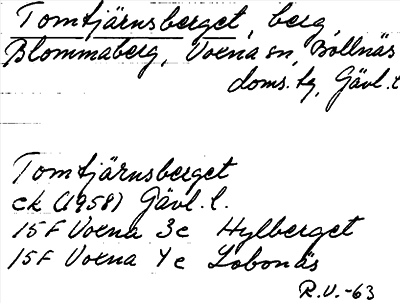 Tomtjärnsberget, berg,
Blommaberg, Voxna sn, Bollnäs
doms. tg, Gävl. l
Tomtjärnsberget
ek (1958) Gävl. l.
15F Voxna 3c Hylberget
15F Voxna 4c Lobonäs
R.V.-63